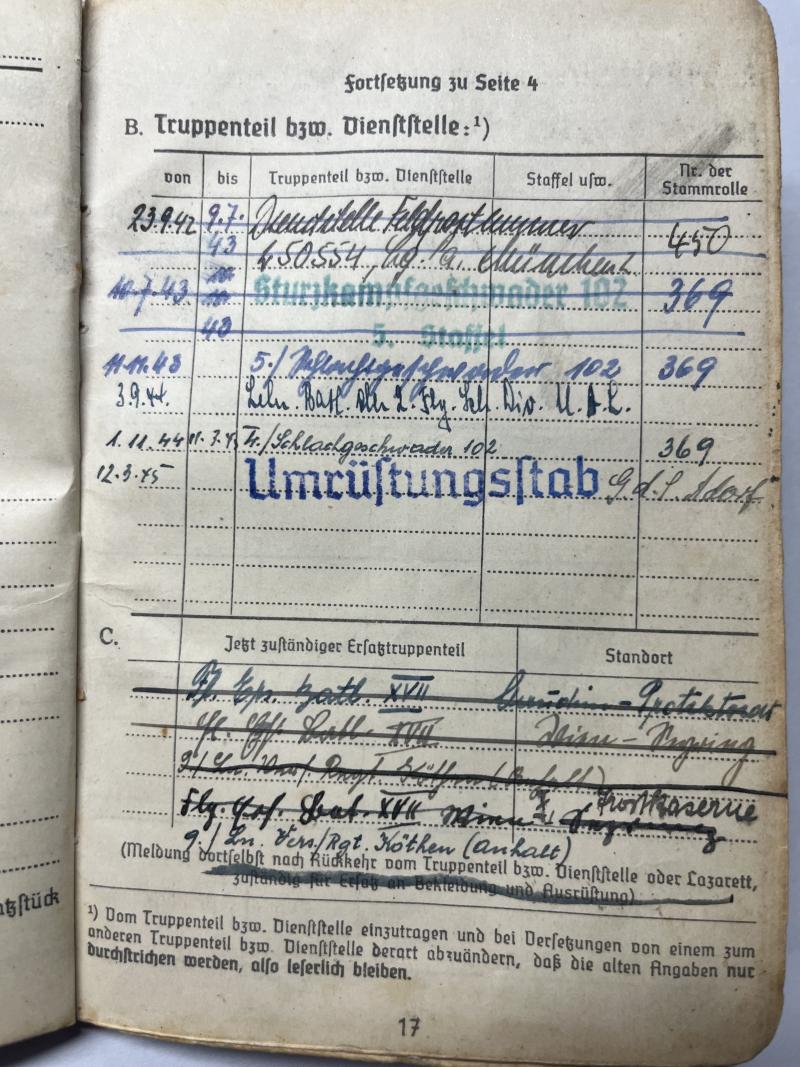 Fortsetzung zu Seite 4
B. Truppenteil bzw. Dienststelle:¹)
von bis Truppenteil bzw. Dienststelle Staffel usw. Nr. der Stammrolle
23.9.42 9.7. Dienststelle Feldpostnummer
43 L 50554, Lg. Pa. München 2 450
10.7.43 Sturzkampfgeschwader 102 369
43 5. Staffel
11.11.43 5./ Schlachtgeschwader 102 369
3.9.44. Batl. der 2. Flg. Sch. Div.
1.11.44 4./Schlachgeschwader 102 369
12.3.45 Umrüstungsstab G.d.S. Adorf
C. Jetzt zuständiger Ersatztruppenteil Standort
Batl. XVII Protektorat
Fl. Batl. XVII Wien-
9./Ln. Vers./ Regt. Köthen (Anhalt)
Flg. Bat. XVII Wien Trostkaserne
9./Ln. Vers./Rgt. Köthen (Anhalt)
(Meldung dortselbst nach Rückkehr vom Truppenteil bzw. Dienststelle oder Lazarett,
zuständig für Ersatz an Bekleidung und Ausrüstung)
¹) Vom Truppenteil bzw. Dienststelle einzutragen und bei Versetzungen von einem zum
anderen Truppenteil bzw. Dienststelle derart abzuändern, daß die alten Angaben nur
durchstrichen werden, also leserlich bleiben.
17